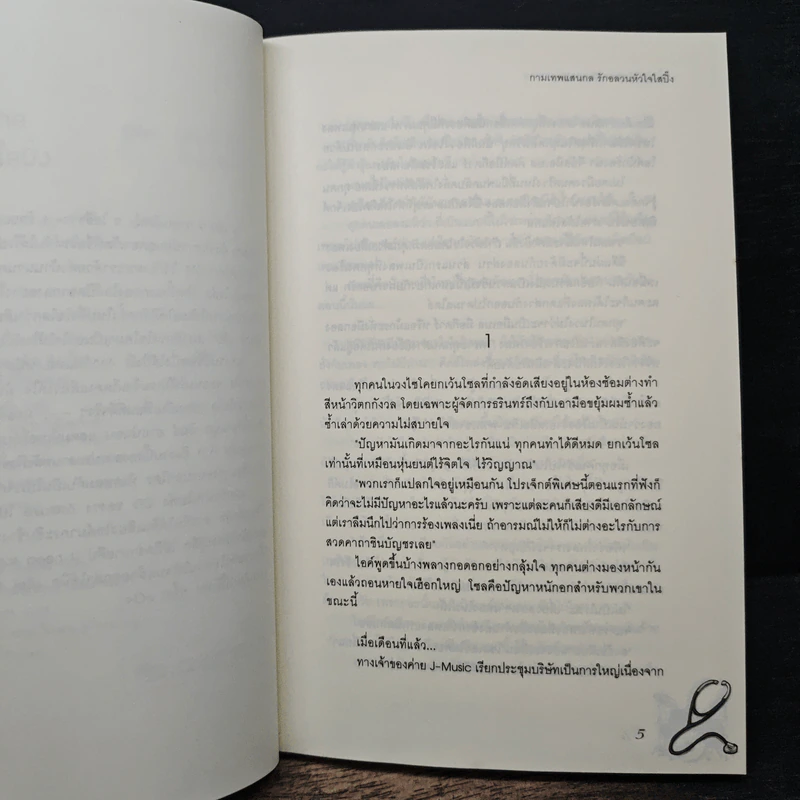 กามเทพแสนกล รักอลวนหัวใจใสปิ๊ง
1
ทุกคนในวงไซโคยกเว้นโซลที่กำลังอัดเสียงอยู่ในห้องซ้อมต่างทำ
สีหน้าวิตกกังวล โดยเฉพาะผู้จัดการธรินทร์ถึงกับเอามือขยุ้มผมซ้ำแล้ว
ซ้ำเล่าด้วยความไม่สบายใจ
"ปัญหามันเกิดมาจากอะไรกันแน่ ทุกคนทำได้ดีหมด ยกเว้นโซล
เท่านั้นที่เหมือนหุ่นยนต์ไร้จิตใจ ไร้วิญญาณ"
"พวกเราก็แปลกใจอยู่เหมือนกัน โปรเจ็กต์พิเศษนี้ตอนแรกที่ฟังก็
คิดว่าจะไม่มีปัญหาอะไรแล้วนะครับ เพราะแต่ละคนก็เสียงดีมีเอกลักษณ์
แต่เราลืมนึกไปว่าการร้องเพลงเนี่ย ถ้าอารมณ์ไม่ให้ก็ไม่ต่างอะไรกับการ
สวดคาถาชินบัญชรเลย"
ไอค์พูดขึ้นบ้างพลางกอดอกอย่างกลุ้มใจ ทุกคนต่างมองหน้ากัน
เองแล้วถอนหายใจเฮือกใหญ่ โซลคือปัญหาหนักอกสำหรับพวกเขาใน
ขณะนี้
เมื่อเดือนที่แล้ว...
ทางเจ้าของค่าย J-Music เรียกประชุมบริษัทเป็นการใหญ่เนื่องจาก
5